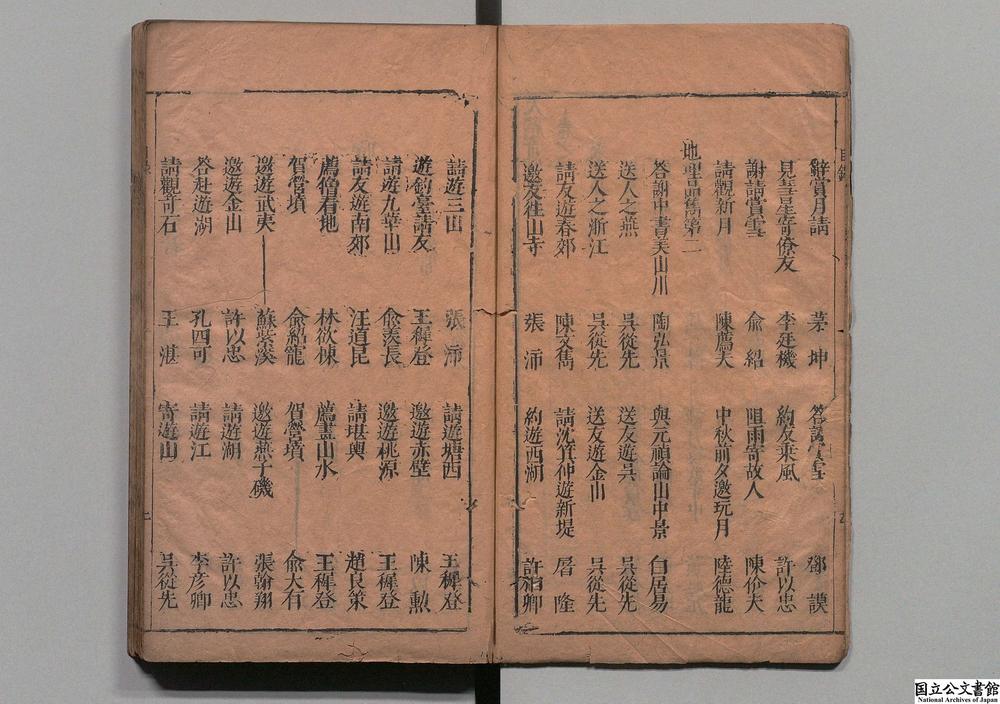 辭賞月請　茅坤　答請賞雪　鄧謨
見彗星寄僚友　李廷機　約友乘風　許以忠
謝請賞雪　俞紹　阻雨寄故人　陳价夫
請觀新月　陳薦夫　中秋前夕邀玩月　陸德龍
地理品雋第二
荅謝中書美山川　陶弘景　與元禎論山中景　白居易
送人之燕　吳從先　送友遊吳　吳從先
送人之浙江　吳從先　送友遊金山　吳從先
請友遊春郊　陳文雋　請沈箕仲遊新堤　屠隆
邀友往山寺　張沛　約遊西湖　許相卿
請遊三山　張沛　請遊塘西　王穉登
遊釣臺請友　王穉登　邀遊赤壁　陳勲
請遊九華山　俞羨長　邀遊桃源　王穉登
請友遊南郊　汪道昆　請堪輿　趙良策
薦僧看地　林欲棟　薦畫山水　王穉登
賀營墳　俞紹龍　賀營墳　俞大有
邀遊武夷　蘇紫溪　邀遊燕子磯　張翰翔
邀遊金山　許以忠　請遊湖　許以忠
荅赴遊湖　孔四可　請遊江　李彥卿
請觀奇石　王湛　寄遊山　吳從先
国立公文書館
National Archives of Japan